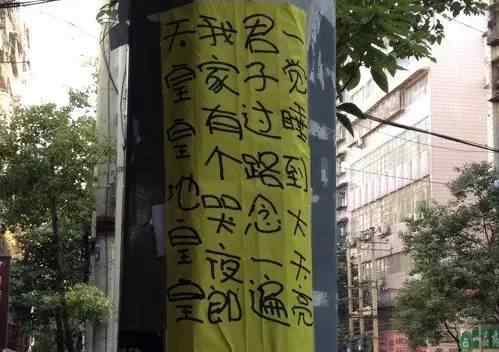 天皇皇地皇皇
我家有个哭夜郎
君子过路念一遍
一觉睡到大天亮